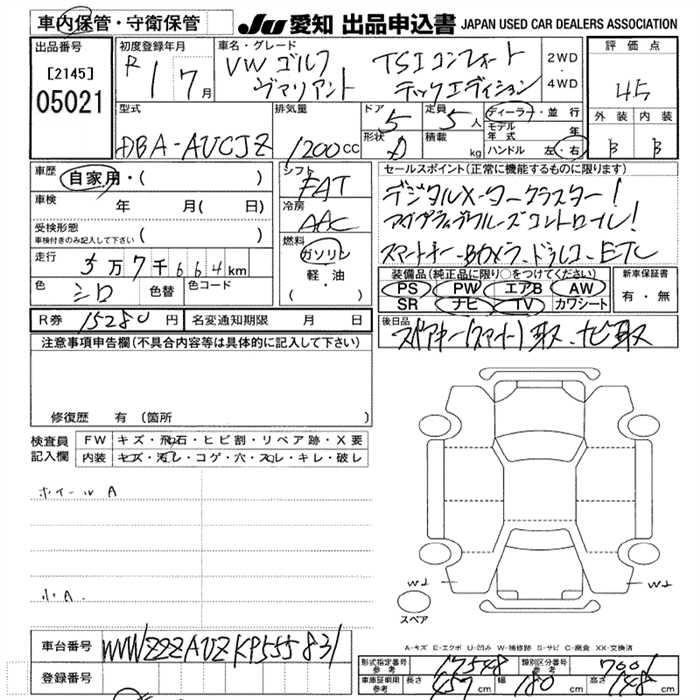 車内保管・守衛保管
JU 愛知 出品申込書 JAPAN USED CAR DEALERS ASSOCIATION
出品番号
[2145]
05021
初度登録年月
R 1 7月
車名・グレード
VW ゴルフ TSIコンフォート
ヴァリアント テックエディション
2WD
・
4WD
評価点
4.5
外装 内装
B B
型式
DBA-AUCJZ
排気量
1200cc
ドア
5
形状
定員
5人
積載 kg
ディーラー・並行
モデル年式 年
ハンドル 左・右
車歴
自家用・( )
車検 年 月( 日)
受検形態
車検付きのみ記入して下さい ( )
走行 3万7千664km
色 シロ 色替 色コード
シフト
FAT
冷房
AAC
燃料
ガソリン
・
軽・油
( )
セールスポイント(正常に機能するものに限ります)
デジタルメータークラスター!
アダプティブクルーズコントロール!
スマートキー・Bカメラ・ドラレコ・ETC
装備品(純正品に限り○をつけてください)
PS PW エアB AW
SR ナビ TV カワシート
新車保証書
有・無
R券 15280円 名変通知期限 月 日
後日品
スペアキー(スマート)取、ナビ取
注意事項申告欄(不具合内容等は具体的に記入して下さい)
修復歴 有(箇所
検査員記入欄
FW キズ・飛石・ヒビ割・リペア跡・X要
内装 キズ・汚レ・コゲ・穴・スレ・キレ・破レ
ホイールA
小A
W2 W2
スペア
A-キズ E-エクボ U-凹み W-補修跡 S-サビ C-腐食 XX-交換済
車台番号 WVWZZZAUZKP555831
登録番号
形式指定番号 参考 17548 類別区分番号 参考 7001
車庫証明用 参考 長さ 457cm 幅 180cm 高さ 148cm